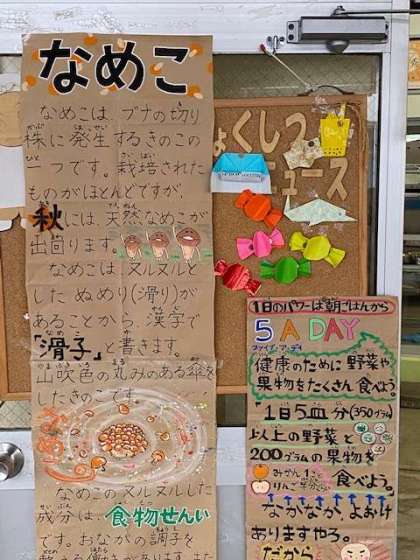 なめこ
なめこは、ブナの切り
株に発生するきのこの
一つです。栽培された
ものがほとんどですが、
秋には、天然なめこが
出回ります。
なめこは、ヌルヌルと
したぬめり(滑り)が
あることから、漢字で
「滑子」と書きます。
山吹色の丸みのある傘を
したきのこです。
なめこのヌルヌルした
成分は、食物せんい
です。おなかの調子を
ょくしつ
ニュース
1日のパワーは朝ごはんから
5 A DAY
ファイブ・ア・デイ
健康のために野菜や
果物をたくさん食べよう。
1日5皿分(350グラム)
以上の野菜と
200グラムの果物を
みかん1こ
食べよう。
なかなか、よぉけ
ありますやろ。
だから